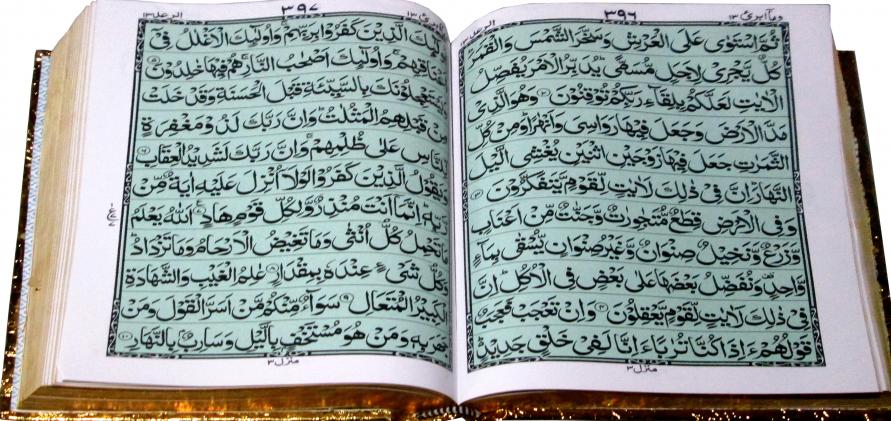 وما ابرئ ١٣
٣٩٦
الرعد ١٣
ثُمَّ اسْتَوٰى عَلَى الْعَرْشِ وَسَخَّرَ الشَّمْسَ وَالْقَمَرَ
كُلٌّ يَّجْرِىْ لِاَجَلٍ مُّسَمًّى يُدَبِّرُ الْاَمْرَ يُفَصِّلُ
الْاٰيٰتِ لَعَلَّكُمْ بِلِقَآءِ رَبِّكُمْ تُوْقِنُوْنَ ۲ وَهُوَ الَّذِىْ
مَدَّ الْاَرْضَ وَجَعَلَ فِيْهَا رَوَاسِىَ وَاَنْهٰرًا وَمِنْ كُلِّ
الثَّمَرٰتِ جَعَلَ فِيْهَا زَوْجَيْنِ اثْنَيْنِ يُغْشِى الَّيْلَ
النَّهَارَ اِنَّ فِىْ ذٰلِكَ لَاٰيٰتٍ لِّقَوْمٍ يَّتَفَكَّرُوْنَ ۳
وَفِى الْاَرْضِ قِطَعٌ مُّتَجٰوِرٰتٌ وَّجَنّٰتٌ مِّنْ اَعْنَابٍ
وَّزَرْعٌ وَّنَخِيْلٌ صِنْوَانٌ وَّغَيْرُ صِنْوَانٍ يُّسْقٰى بِمَآءٍ
وَّاحِدٍ وَنُفَضِّلُ بَعْضَهَا عَلٰى بَعْضٍ فِى الْاُكُلِ اِنَّ
فِىْ ذٰلِكَ لَاٰيٰتٍ لِّقَوْمٍ يَّعْقِلُوْنَ ۴ وَاِنْ تَعْجَبْ فَعَجَبٌ
قَوْلُهُمْ ءَاِذَا كُنَّا تُرٰبًا ءَاِنَّا لَفِىْ خَلْقٍ جَدِيْدٍ
منزل ٣
ومآ ابرئ ١٣
٣٩٧
الرعد ١٣
اُولٰٓئِكَ الَّذِيْنَ كَفَرُوْا بِرَبِّهِمْ وَاُولٰٓئِكَ الْاَغْلٰلُ فِىْ
اَعْنَاقِهِمْ وَاُولٰٓئِكَ اَصْحٰبُ النَّارِ هُمْ فِيْهَا خٰلِدُوْنَ ۵
وَيَسْتَعْجِلُوْنَكَ بِالسَّيِّئَةِ قَبْلَ الْحَسَنَةِ وَقَدْ خَلَتْ
مِنْ قَبْلِهِمُ الْمَثُلٰتُ وَاِنَّ رَبَّكَ لَذُوْ مَغْفِرَةٍ
لِّلنَّاسِ عَلٰى ظُلْمِهِمْ وَاِنَّ رَبَّكَ لَشَدِيْدُ الْعِقَابِ ۶
وَيَقُوْلُ الَّذِيْنَ كَفَرُوْا لَوْلَآ اُنْزِلَ عَلَيْهِ اٰيَةٌ مِّنْ
رَّبِّهٖ اِنَّمَآ اَنْتَ مُنْذِرٌ وَّلِكُلِّ قَوْمٍ هَادٍ ۷ اَللّٰهُ يَعْلَمُ
مَا تَحْمِلُ كُلُّ اُنْثٰى وَمَا تَغِيْضُ الْاَرْحَامُ وَمَا تَزْدَادُ
وَكُلُّ شَىْءٍ عِنْدَهٗ بِمِقْدَارٍ ۸ عٰلِمُ الْغَيْبِ وَالشَّهَادَةِ
الْكَبِيْرُ الْمُتَعَالِ ۹ سَوَآءٌ مِّنْكُمْ مَّنْ اَسَرَّ الْقَوْلَ وَمَنْ
جَهَرَ بِهٖ وَمَنْ هُوَ مُسْتَخْفٍ بِالَّيْلِ وَسَارِبٌ بِالنَّهَارِ ۱۰
منزل ٣